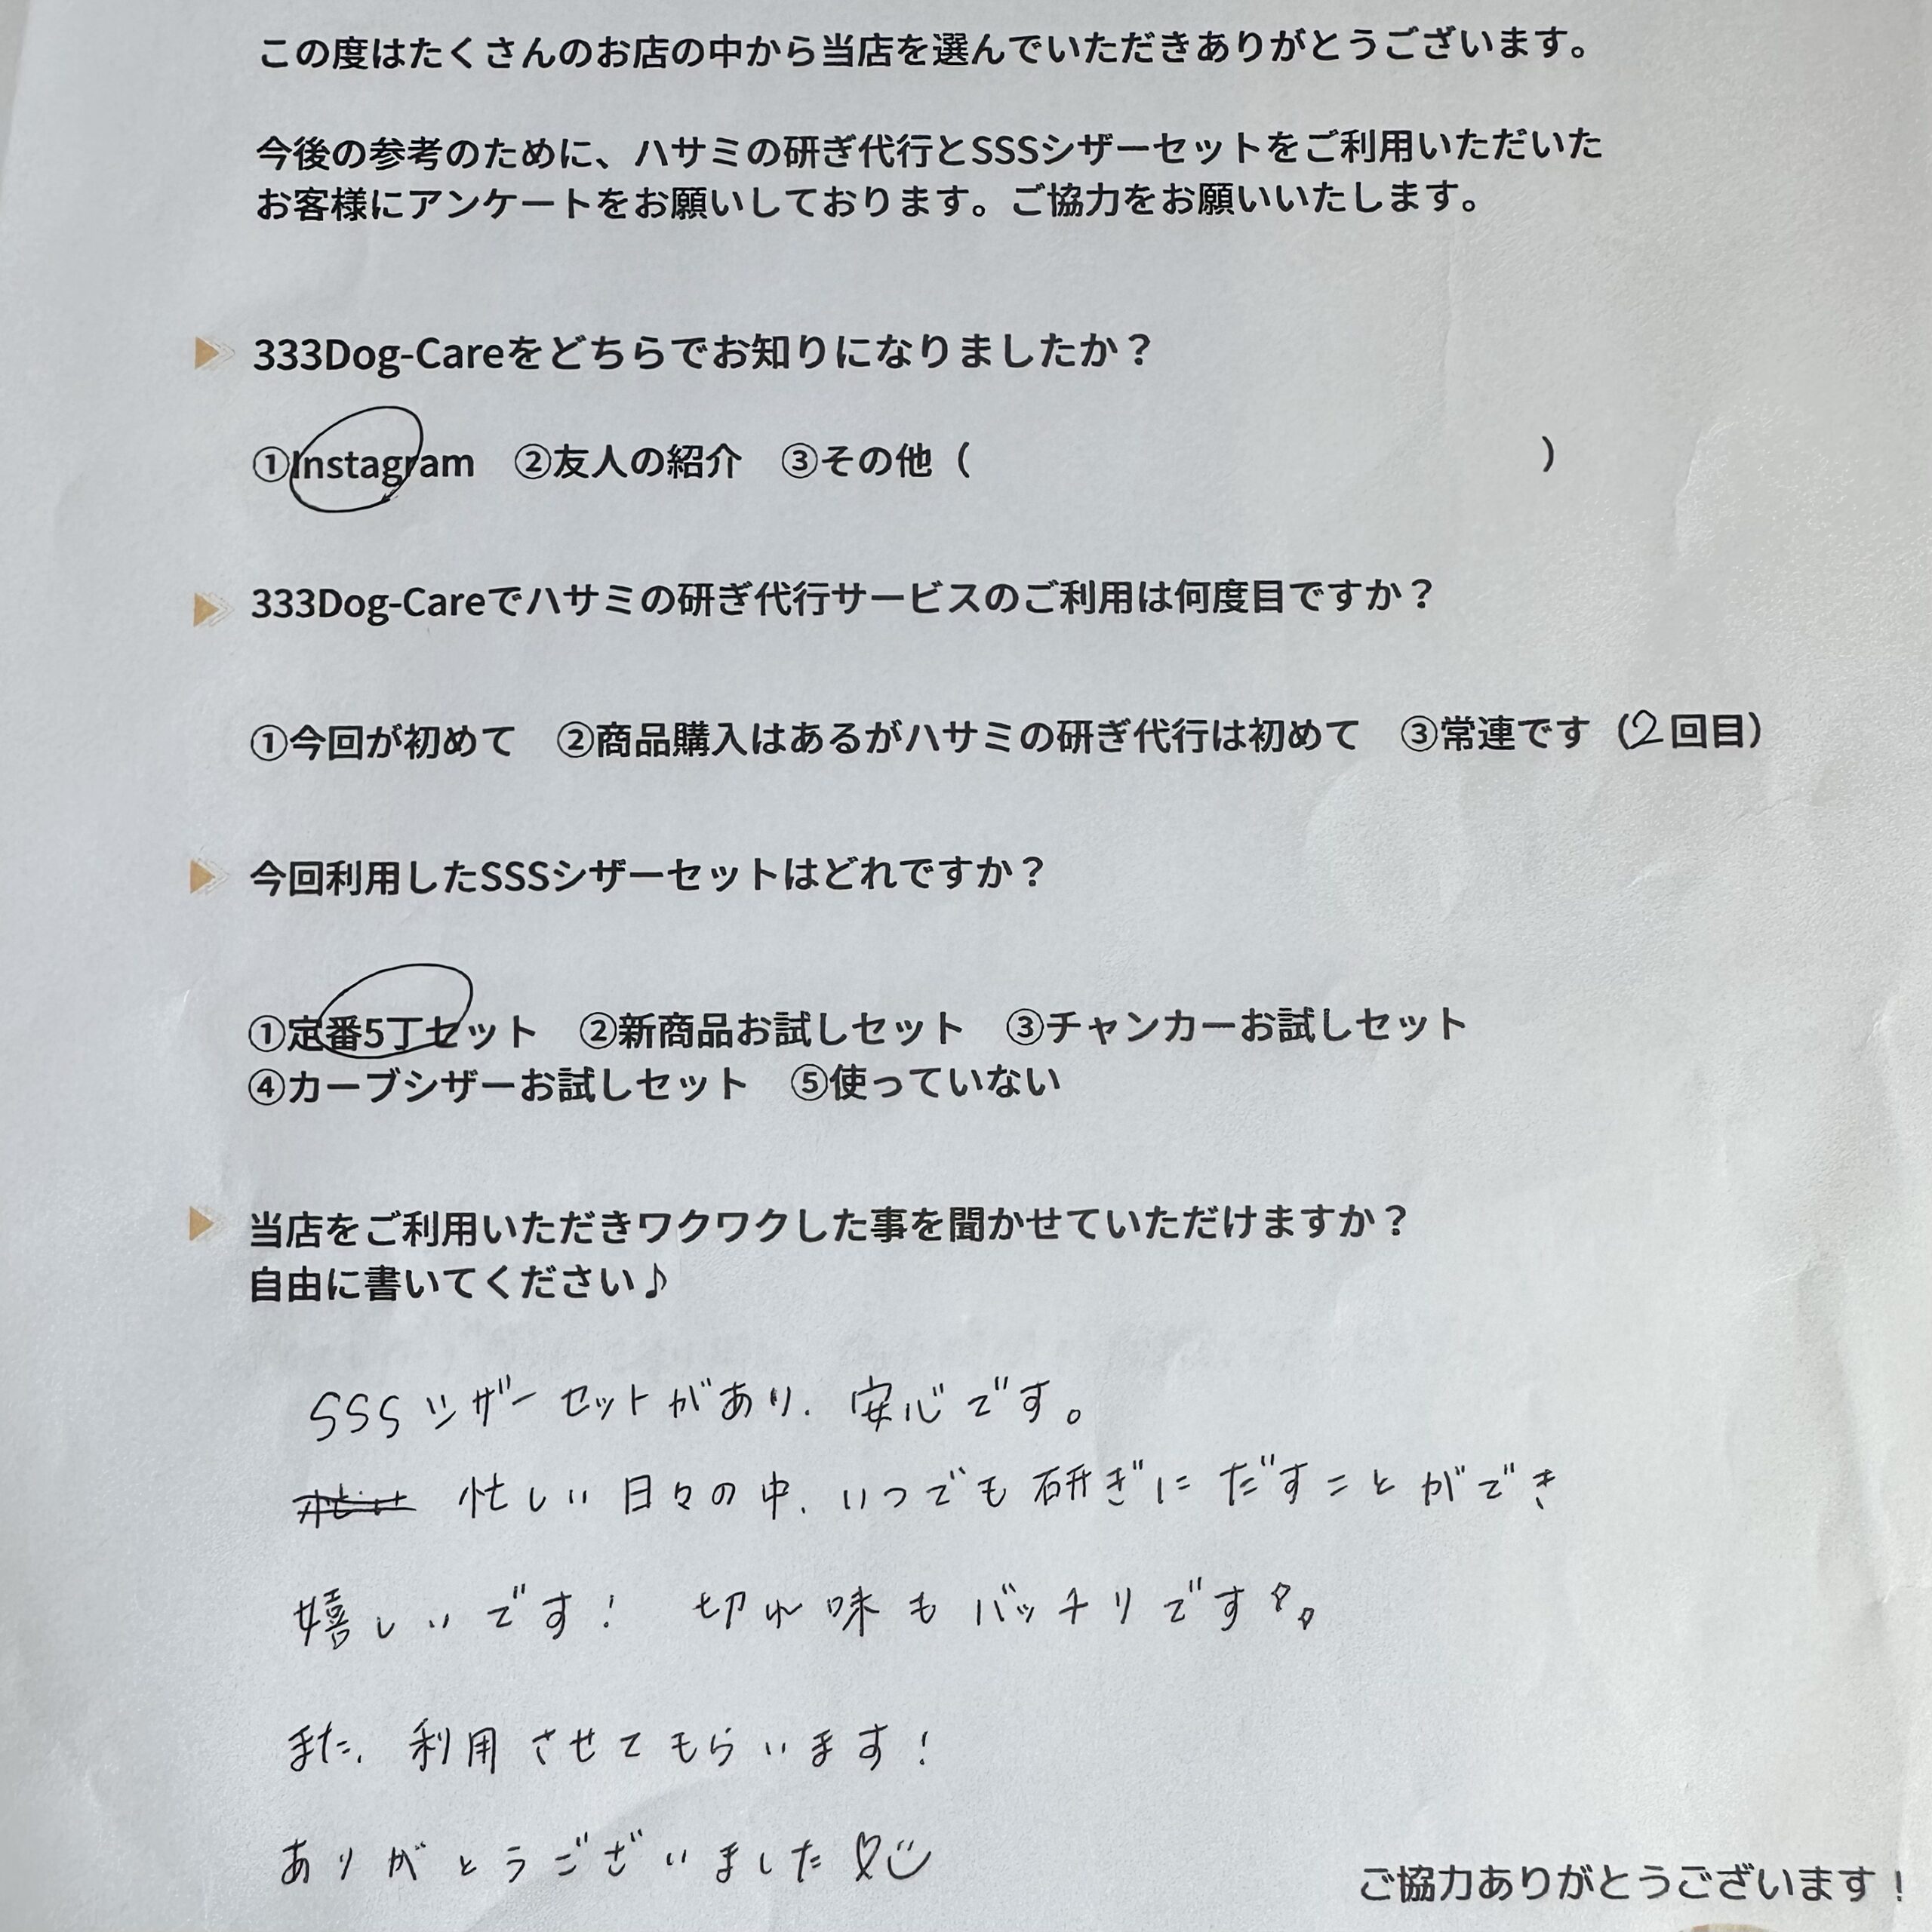 この度はたくさんのお店の中から当店を選んでいただきありがとうございます。
今後の参考のために、ハサミの研ぎ代行とSSSシザーセットをご利用いただいた
お客様にアンケートをお願いしております。ご協力をお願いいたします。
333Dog-Careをどちらでお知りになりましたか？
①Instagram ②友人の紹介 ③その他（ ）
333Dog-Careでハサミの研ぎ代行サービスのご利用は何度目ですか？
①今回が初めて ②商品購入はあるがハサミの研ぎ代行は初めて ③常連です（2回目）
今回利用したSSSシザーセットはどれですか？
①定番5丁セット ②新商品お試しセット ③チャンカーお試しセット
④カーブシザーお試しセット ⑤使っていない
当店をご利用いただきワクワクした事を聞かせていただけますか？
自由に書いてください♪
SSSシザーセットがあり、安心です。
忙しい日々の中、いつでも研ぎにだすことができ
嬉しいです！ 切れ味もバッチリです。
また、利用させてもらいます！
ありがとうございました♡
ご協力ありがとうございます！